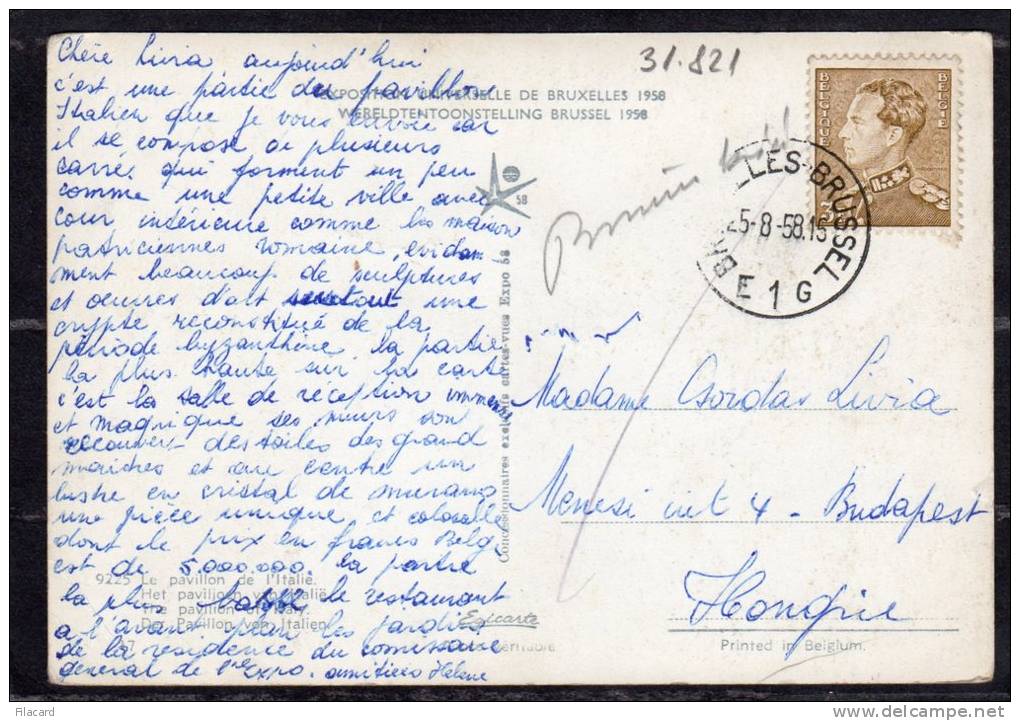 Chère Livia aujourd'hui
c'est une partie du pavillon
Italien que je vous envoie car
il se compose de plusieurs
carrés qui forment un peu
comme une petite ville avec
cour intérieure comme les maison
patriciennes romaine, evidam
ment beaucoup de sculptures
et œuvres d'art surtout une
crypte reconstitué de la
période byzanthine, la partie
la plus haute sur la carte
c'est la salle de réception immense
et magnique ses murs son
recouvert des toiles des grand
maitres et au centre un
lustre en cristal de murano
une pièce unique et colosalle
dont le prix en francs Belge
est de 5.000.000. la partie
la plus le restaurant
a l'avant plan les jardins
de la résidence du comissaire
general de l'expo. amitiées Helene
9225 Le pavillon de l'Italie.
Het paviljoen van Italië.
The pavilion of Italy.
Der Pavillon von Italien.
31.821
EXPOSITION UNIVERSELLE DE BRUXELLES 1958
WERELDTENTOONSTELLING BRUSSEL 1958
58
Concessionnaires exclusifs cartes-vues Expo 58
BELGIQUE BELGIE
LLES-BRUSSEL
25-8-58.15
E 1 G
Madame Csordas Livia
Menesi ut 4 - Budapest
Hongrie
Egicarte
Printed in Belgium.
filacard
www.delcampe.net